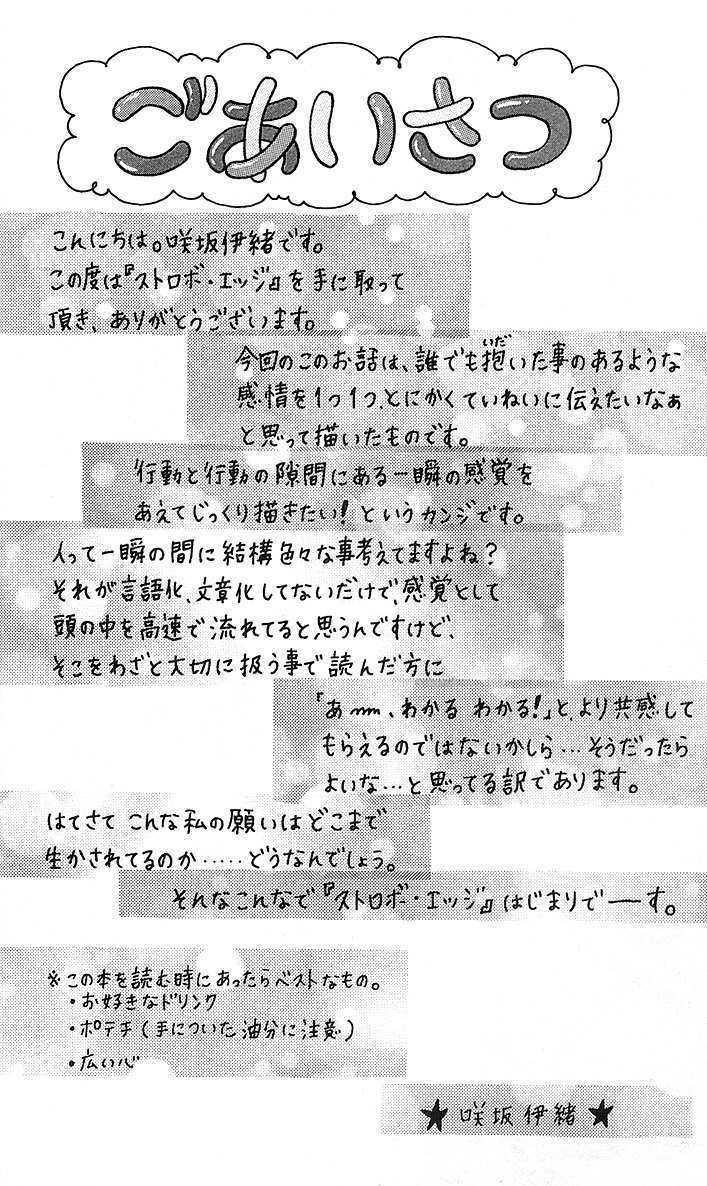 ごあいさつ
こんにちは。咲坂伊緒です。
この度は『ストロボ・エッジ』を手に取って
頂き、ありがとうございます。
今回のこのお話は、誰でも抱いた事のあるような
感情を1つ1つ、とにかくていねいに伝えたいなぁ
と思って描いたものです。
行動と行動の隙間にある一瞬の感覚を
あえてじっくり描きたい!というカンジです。
人って一瞬の間に結構色々な事考えてますよね?
それが言語化、文章化してないだけで、感覚として
頭の中を高速で流れてると思うんですけど、
そこをわざと大切に扱う事で読んだ方に
「あーー、わかるわかる!」と、より共感して
もらえるのではないかしら…そうだったら
よいな…と思ってる訳であります。
はてさてこんな私の願いはどこまで
生かされてるのか……どうなんでしょう。
そんなこんなで『ストロボ・エッジ』はじまりでーーす。
※この本を読む時にあったらベストなもの。
・お好きなドリンク
・ポテチ(手についた油分に注意)
・広い心
★咲坂伊緒★